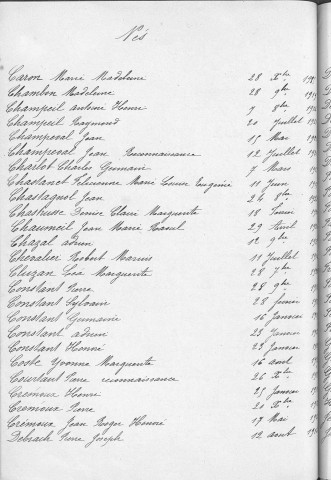 Nés
Caron Marie Madeleine 28 Xbre
Chambon Madeleine 28 9bre
Champeil Antoine Henri 7 8bre
Champeil Raymond 20 Juillet
Champeval Jean 15 Mai
Champeval Jean Reconnaissance 12 Juillet
Charlot Charles Germain 7 Mars
Chastanet Félicienne Marie Louise Eugénie 11 Juin
Chastagnol Jean 24 8bre
Chastrusse Denise Claire Marguerite 18
Chaumeil Jean Marie Raoul 29 Avril
Chazal Adrien 12 9bre
Chevalier Robert Marius 11 Juillet
Cluzan Marguerite 28 7bre
Constant Pierre 28 9bre
Constant Sylvain 28 Janvier
Constant Germaine 16 Janvier
Constant Adrien 23 Janvier
Constant Honoré 23 Janvier
Coste Yvonne Marguerite 16 aout
reconnaissance 26 Xbre
Cremoux Henri 25 Janvier
Cremoux Pierre 21 Xbre
Crémoux Jean Roger Honoré 17 Mai
Debrach Pierre Joseph 12 aout